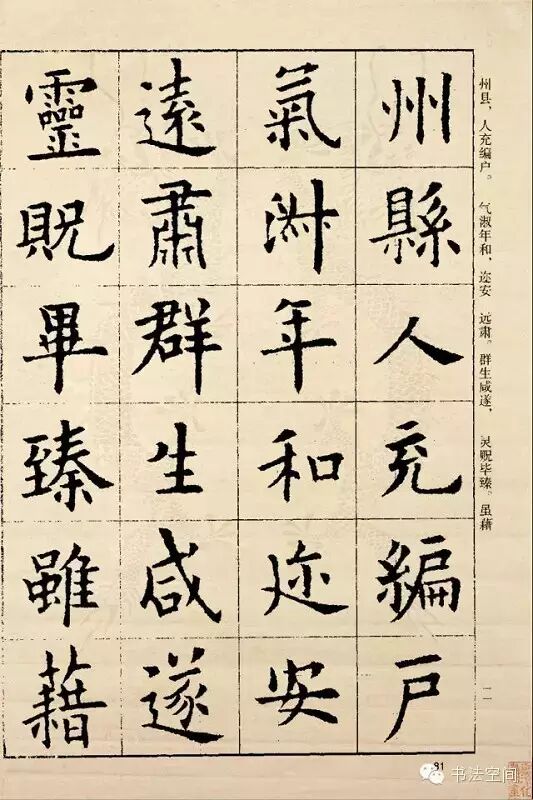 州县、人充编户。 气淑年和、迩安 远肃。群生咸遂， 灵贶毕臻。虽藉
州縣人充編戶
氣淑年和迩安
遠肅群生咸遂
靈貺畢臻雖藉
一一
81
书法空间